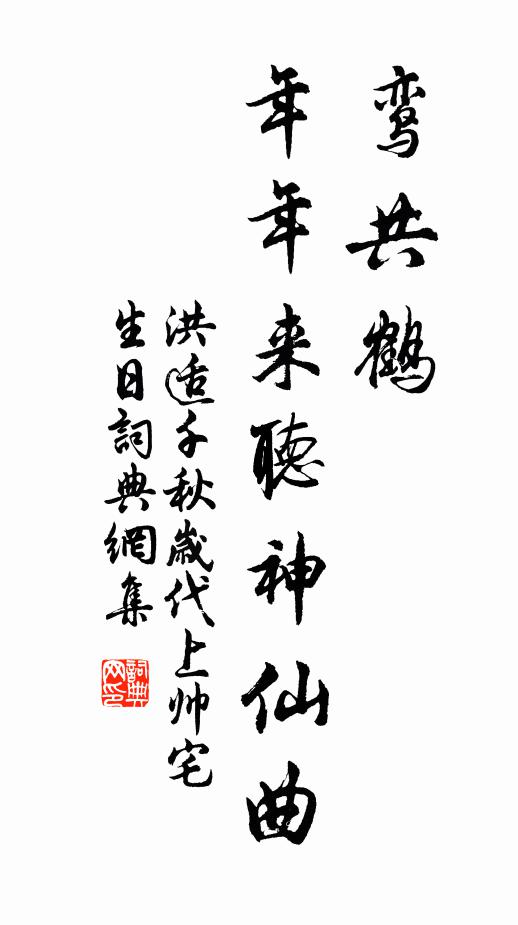 鸾共鶴
年年来聽神仙曲
洪适千秋歲代上帅宅
生日詞典網集
詞典
网印